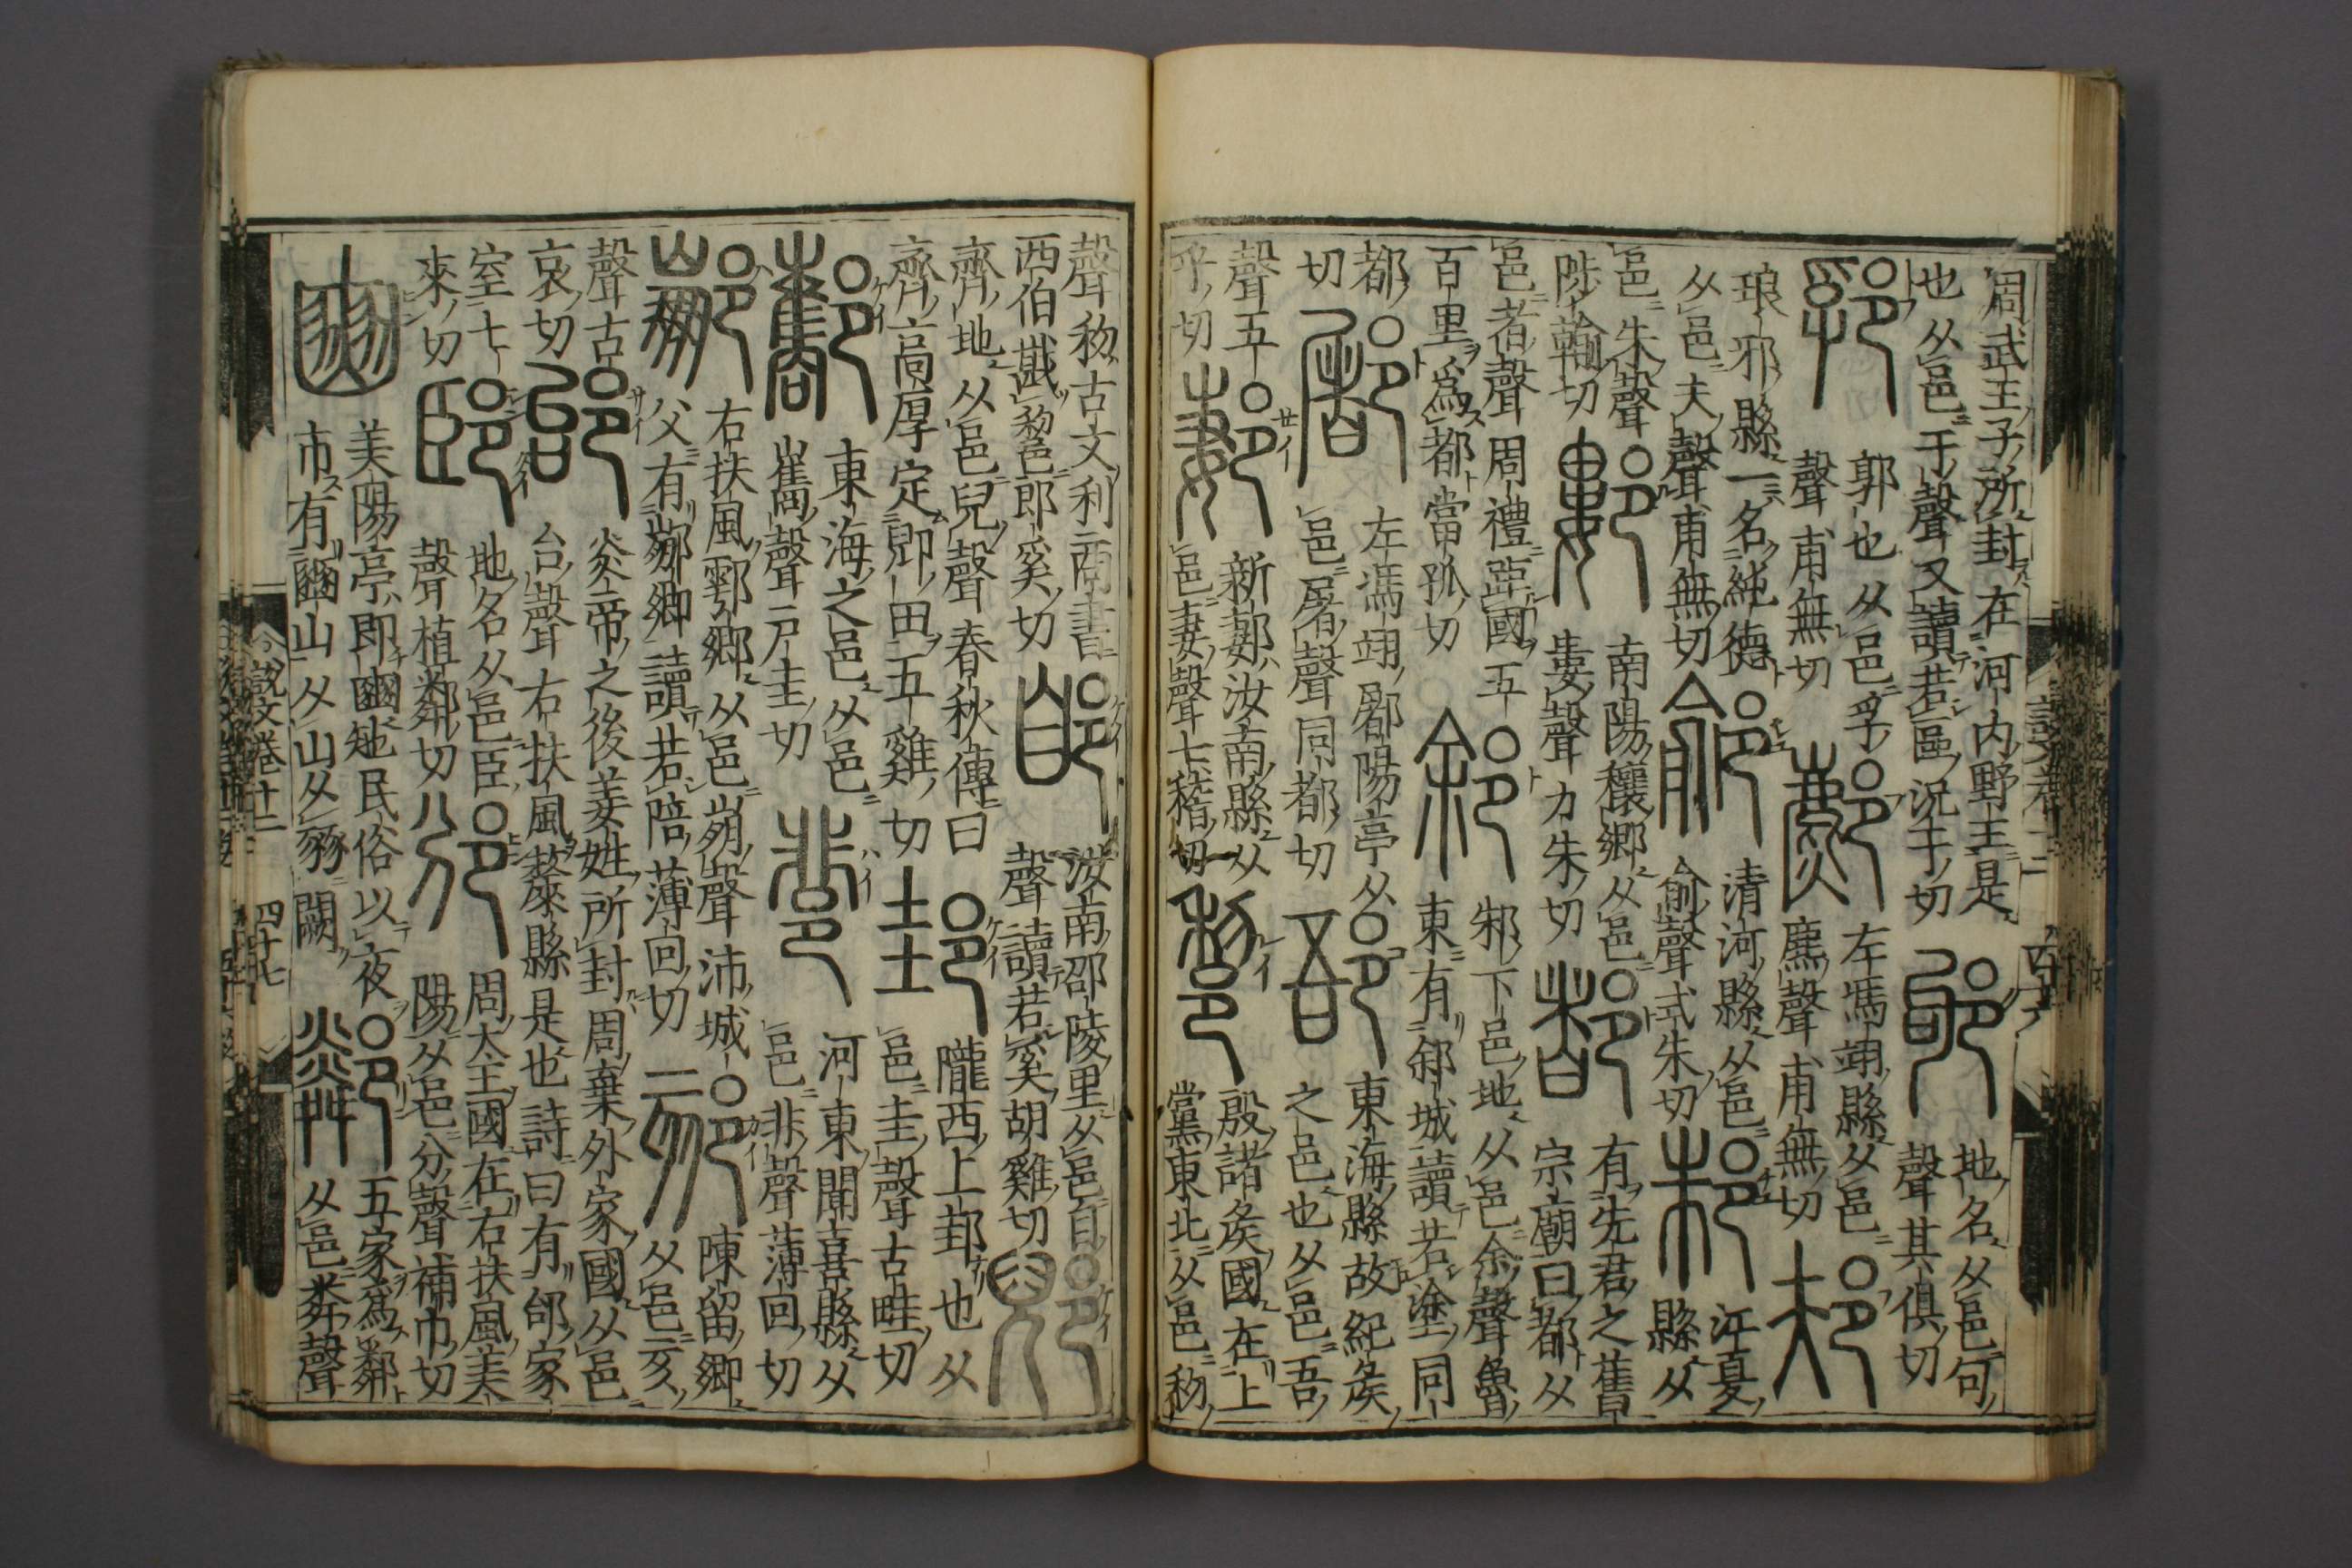 周武王子所封在河内野王是
也从邑于聲又讀若區況于切
邭
地名从邑句
聲其俱切
郛
郭也从邑孚
聲甫無切
鄜
左馮翊縣从邑
麃聲甫無切
邞
琅邪縣一名純德
从邑夫聲甫無切
鄃
清河縣从邑
俞聲式朱切
邾
江夏
縣从
邑朱聲
陟輸切
南陽穰鄉从邑
婁聲力朱切
都
有先君之舊
宗廟曰都从
邑者聲周禮距國五
百里爲都當孤切
䣄
邾下邑地从邑余聲魯
東有䣄城讀若塗同
都
切
䣝
左馮翊䣝陽亭从
邑屠聲同都切
郚
東海縣故紀矦
之邑也从邑吾
聲五
乎切
郪
新郪汝南縣从
邑妻聲七稽切
𨛫
殷諸矦國在上
黨東北从邑𥝢
聲𥝢古文利商書
西伯戡𨛫郎奚切
郋
汝南邵陵里从邑自
聲讀若奚胡雞切
郳
齊地从邑兒聲春秋傳曰
齊高厚定郳田五雞切
邽
隴西上邽也从
邑圭聲古畦切
酅
東海之邑从邑
巂聲戸圭切
𨛬
河東聞喜縣从
邑非聲薄回切
䣙
右扶風鄠鄉从邑崩聲沛城
父有䣙鄉讀若陪薄回切
郂
陳留鄉
从邑亥
聲古
哀切
邰
炎帝之後姜姓所封周棄外家國从邑
台聲右扶風斄縣是也詩曰有邰家
室土
來切
地名从邑臣
聲植鄰切
邠
周太王國在右扶風美
陽从邑分聲補巾切
豳
美陽亭即豳也民俗以夜
市有豳山从山从豩闕
鄰
五家爲鄰
从邑粦聲
說文卷十二 四十七